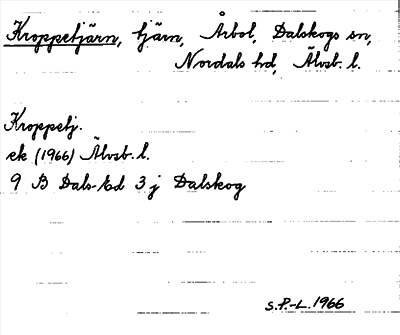 Kroppetjärn, tjärn, Årbol, Dalskogs sn,
Nordals hd, Älvsb. l.
Kroppetj.
ek (1966) Älvsb. l.
9 B Dals-Ed 3 j Dalskog
S.P.-L. 1966